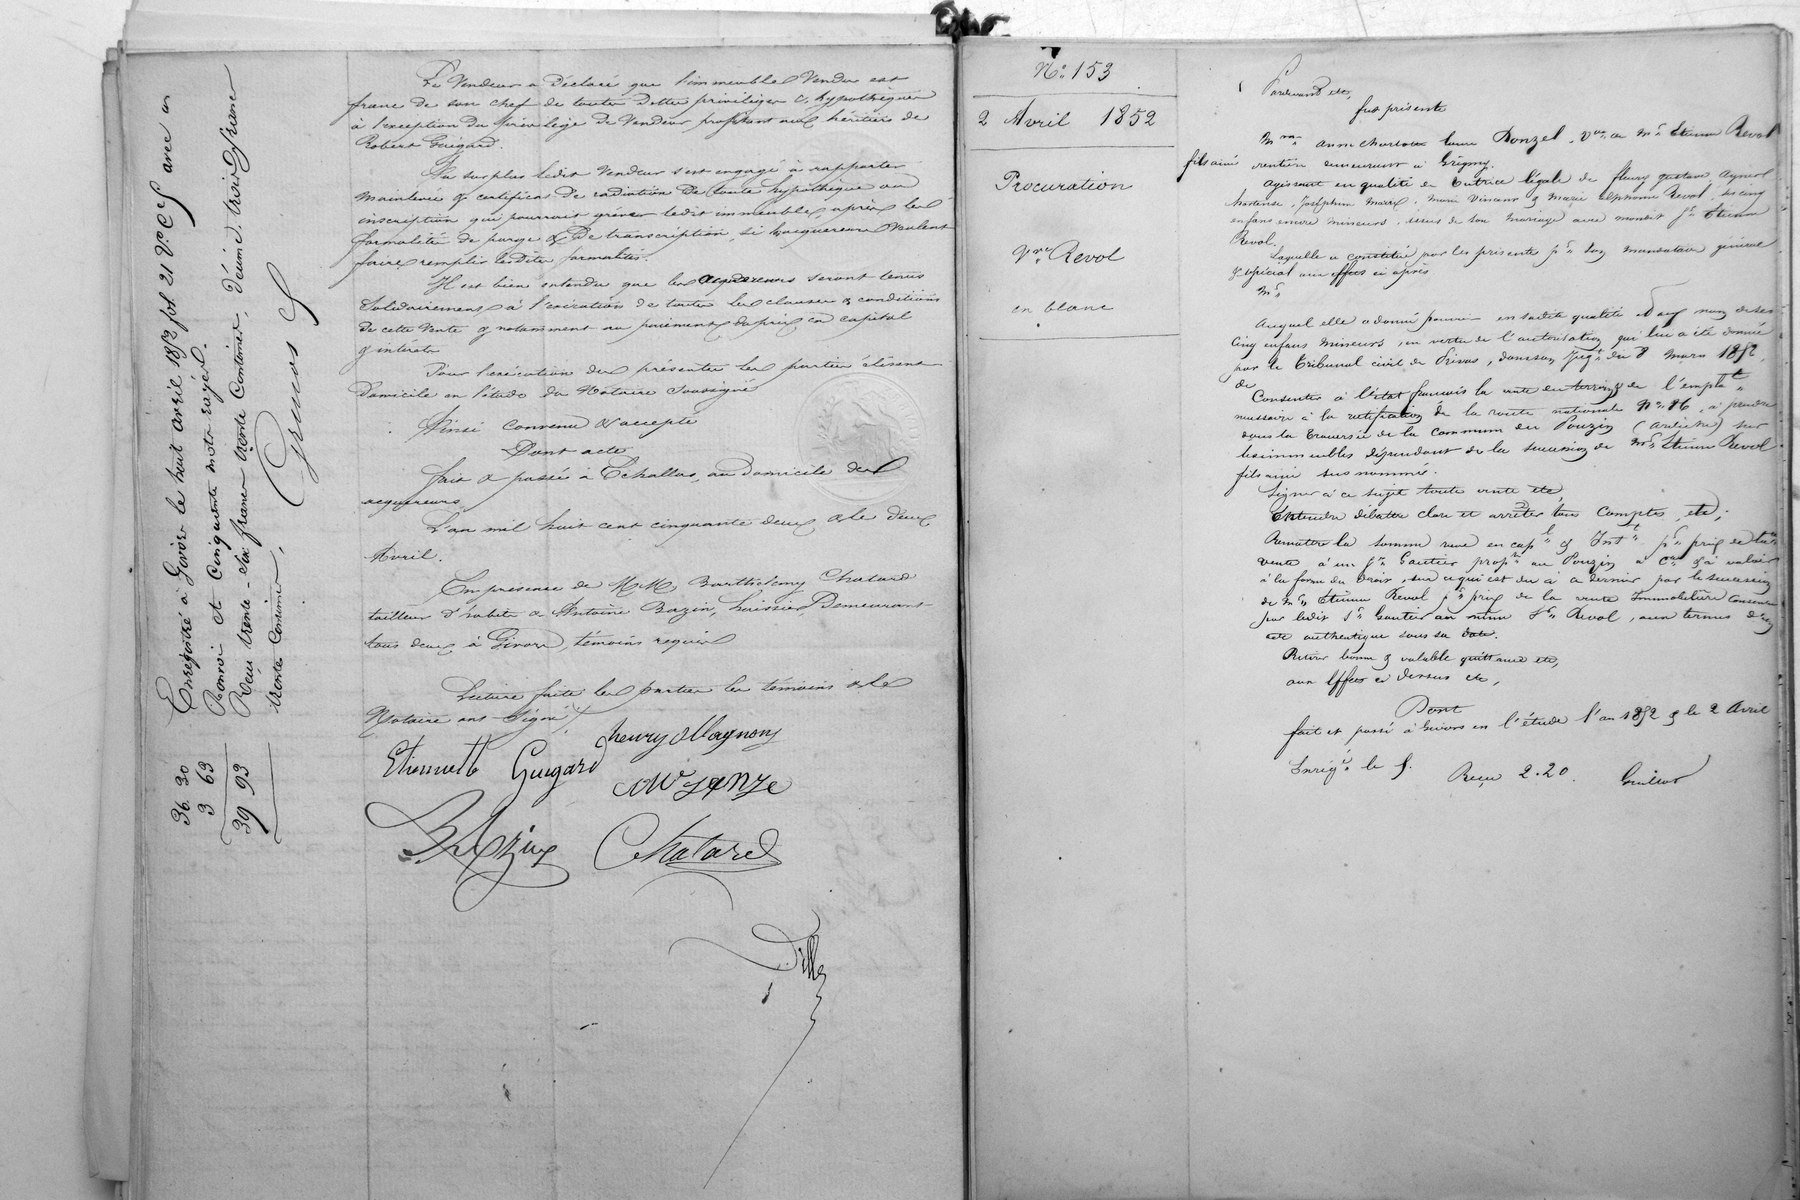 Le Vendeur a Déclaré que l'immeuble Vendu est
franc de son chef de toutes Dettes privilégiées & hypothéquées
à l'exception du privilège de Vendeur profitant aux héritiers de
Robert Guigard.
Au surplus ledit Vendeur s'est engagé à rapporter
Mainlevée & certificat de radiation de toute hypothèque ou
inscription qui pourrait grever ledit immeuble, après les
formalités de purge & de transcription, si les acquéreurs veulent
faire remplir lesdites formalités.
Il est bien entendu que les acquéreurs seront tenus
Solidairement à l'exécution de toutes les clauses & conditions
de cette Vente & notamment au paiement du prix en capital
& intérêts
Pour l'exécution des présentes les parties élisent
Domicile en l'étude du Notaire Soussigné
Ainsi convenu & accepté
Dont acte
fait & passé à Echallas, au Domicile des
acquéreurs
L'an mil huit cent cinquante deux, & le Deux
Avril.
En présence de M.M. Barthélemy Chatard
tailleur d'habits & Antoine Bazin, huissier, Demeurant
tous deux à Givors, témoins requis
Lecture faite les parties les témoins & le
Notaire ont Signé
henry Magnony
Etiennette Guigard
Bazin Chatard
Enregistré à Givors le huit avril 1852 fol 21 Vo. C 5 avec un
Renvoi et Cinquante mots rayés.
Reçu trente-six francs trente Centimes, Décime trois francs
trente Centimes.
36 30
3 63
39 93
No. 153
2 Avril 1852
Procuration
Vve. Revol
en blanc
Pardevant etc,
fut présente
Mme anne charlotte Donzel, Vve de Mr. Etienne Revol
fils ainé rentière demeurant à Grigny.
Agissant en qualité de tutrice légale de fleury gustave, Agnès
hortense, Joséphine Marie, Marie Vincent & Marie Delphonse Revol, ses cinq
enfans encore mineurs, issus de son mariage avec mondit Sr. Etienne
Revol.
Laquelle a constitué par les présentes pr. son mandataire général
& spécial aux effets ci après
Mr.
Auquel elle a donné pouvoir en sadite qualité & au nom de ses
cinq enfans mineurs, en vertu de l'autorisation qui lui a été donnée
par le Tribunal civil de Privas, dans son Jugt. du 8 Mars 1852,
de
Consentir à l'état français la vente du terrain de l'emplt.
nécessaire à la rectification de la route nationale No. 86, à prendre
dans la traversée de la commune du Pouzin (ardèche) sur
les immeubles dépendant de la succession de Mr. Etienne Revol
fils ainé susnommé.
Signer à ce sujet toute vente etc,
Entendre débattre clore et arrêter tous Comptes, etc;
Remettre la somme reçue en capl. & Intt. pr. prix de la
vente à un Sr. Gautier proprre au Pouzin à Cte. & à valoir
à la forme du Droit, sur ce qui est dû à ce dernier par la succession
de Mr. Etienne Revol pr. prix de la vente Immobilière consentie
par ledit Sr. Gautier au même Sr. Revol, aux termes d'un
acte authentique sous sa Date.
Retirer bonne & valable quittance etc,
aux effets ci Dessus etc,
Dont
fait et passé à Givors en l'étude l'an 1852 & le 2 Avril
Enrigé. le 8. Reçu 2.20.